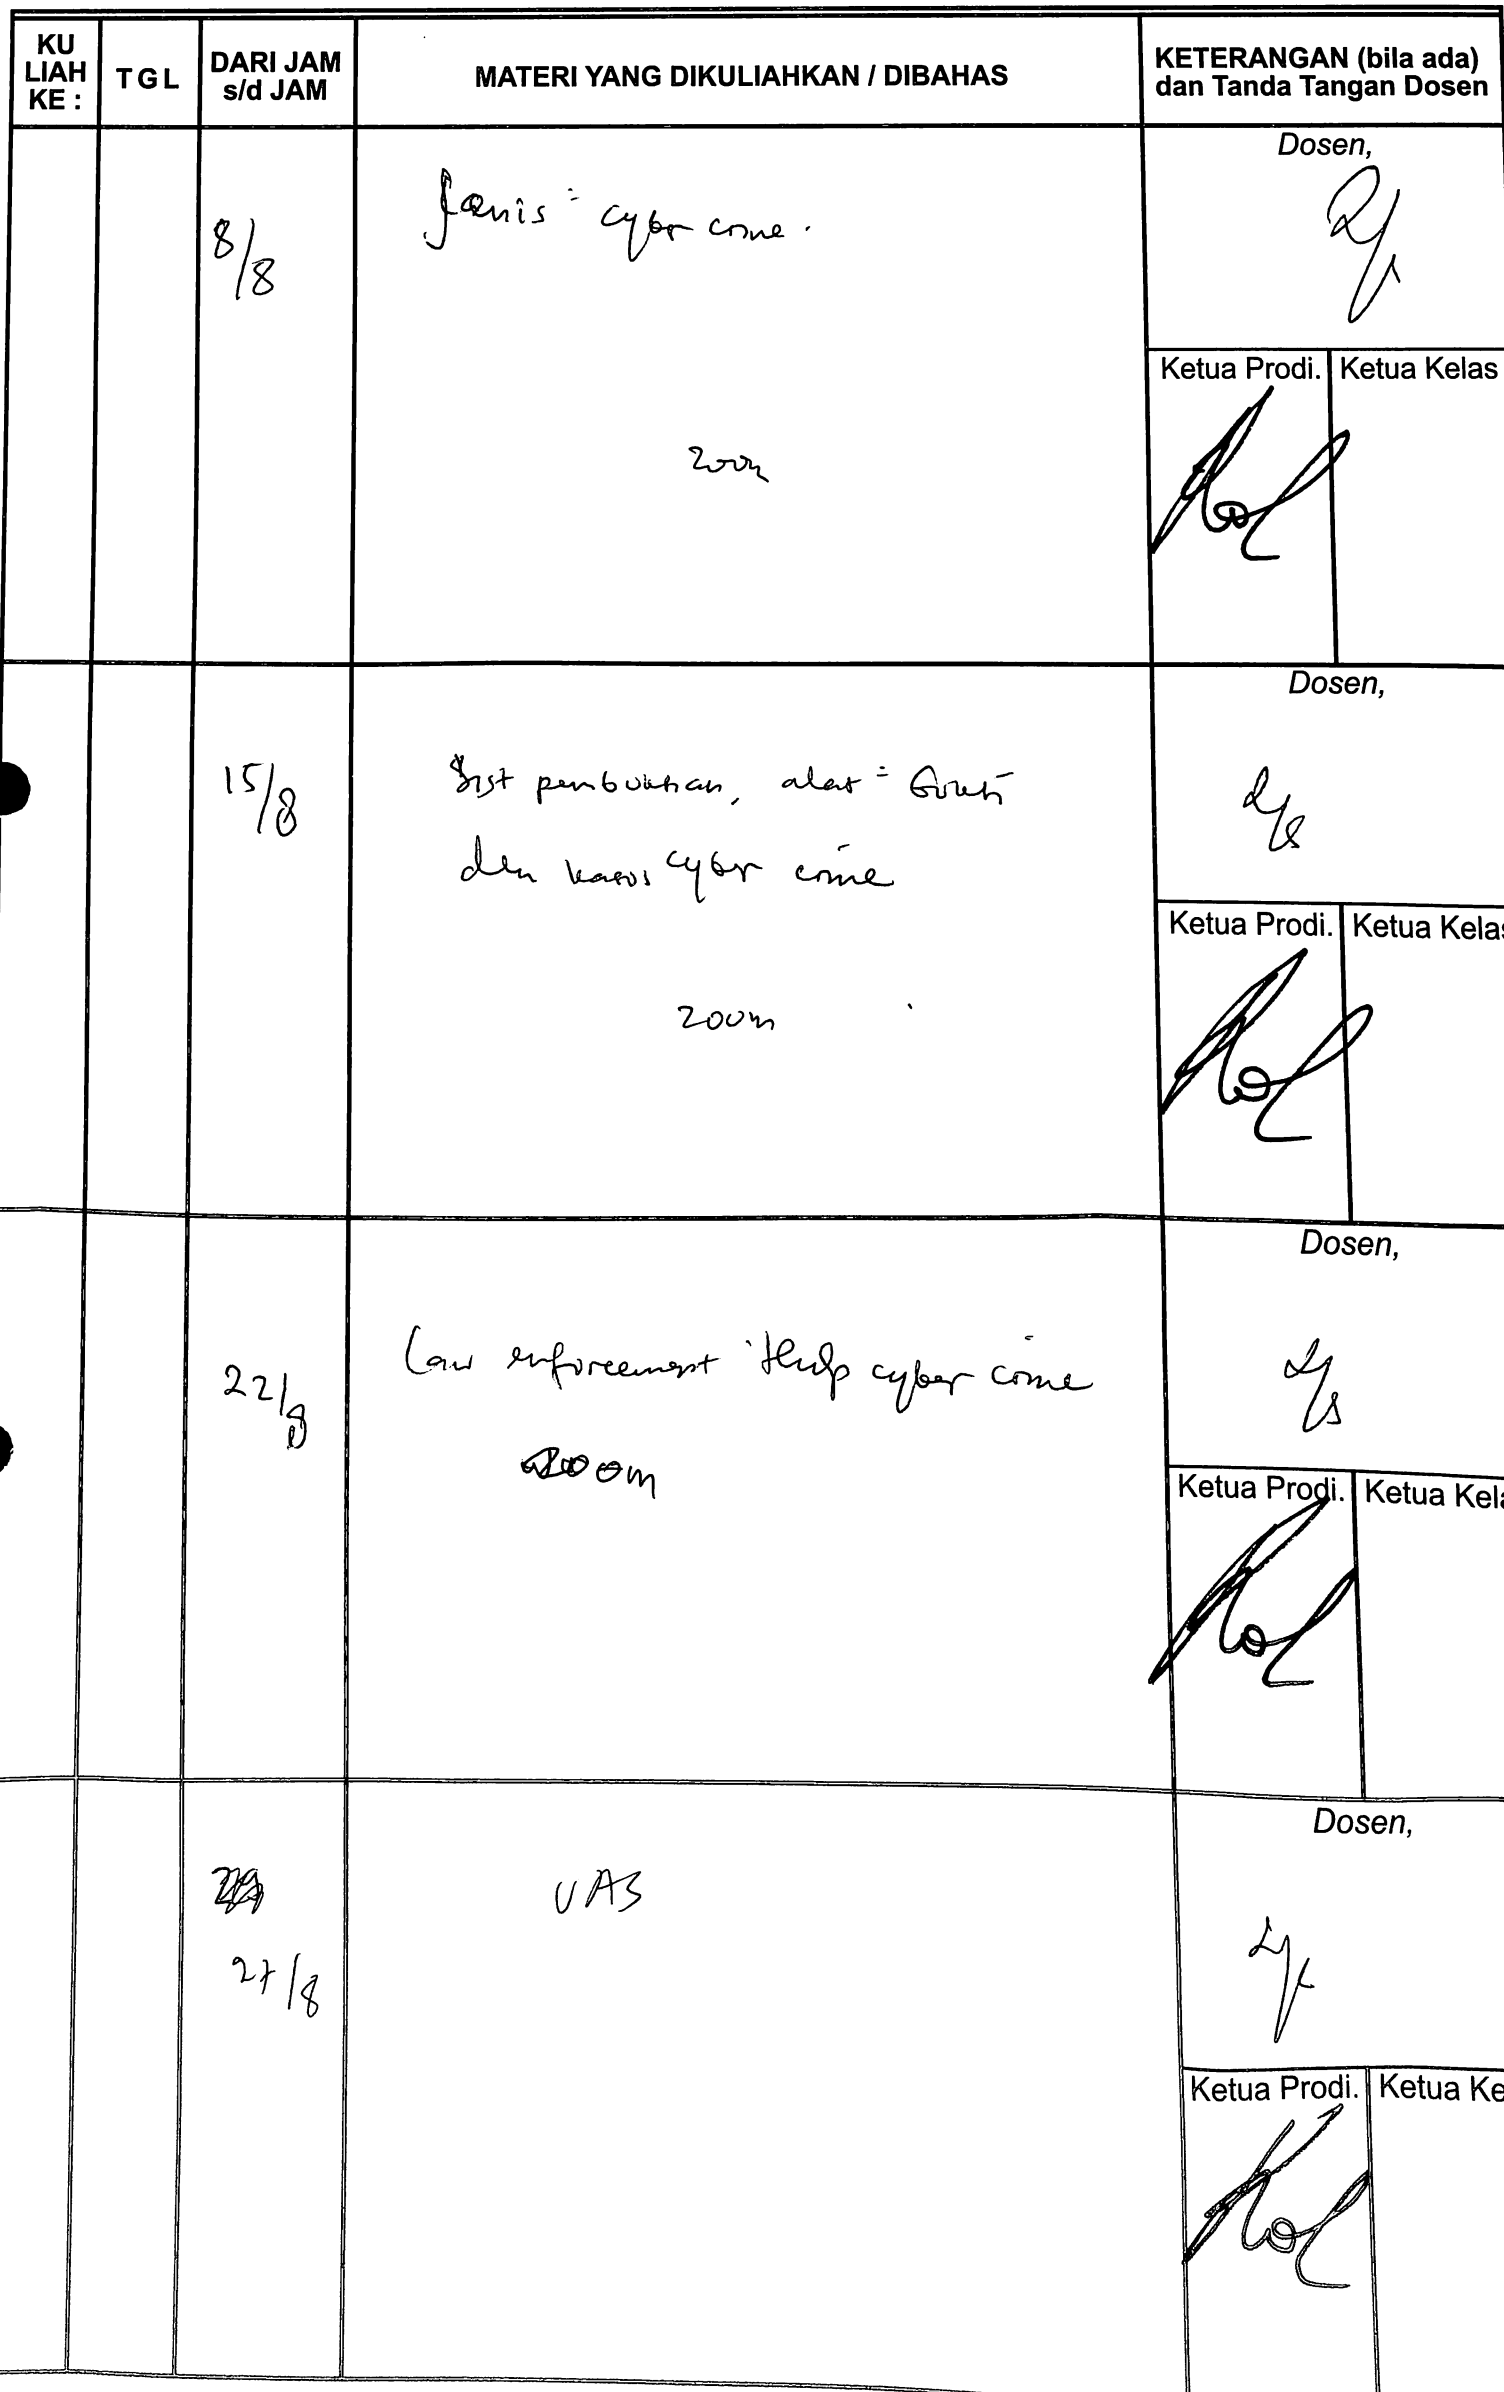 KU LIAH KE :
TGL
DARI JAM s/d JAM
MATERI YANG DIKULIAHKAN / DIBAHAS
KETERANGAN (bila ada) dan Tanda Tangan Dosen
8/8
Jenis = cyber crime.
zoom
Dosen,
Ketua Prodi.
Ketua Kelas
15/8
Sist pembuktian, alat = bukti
dan kasus cyber crime
zoom
Dosen,
Ketua Prodi.
Ketua Kelas
22/8
Law enforcement thdp cyber crime
zoom
Dosen,
Ketua Prodi.
Ketua Kela
27/8
UAS
Dosen,
Ketua Prodi.
Ketua Ke